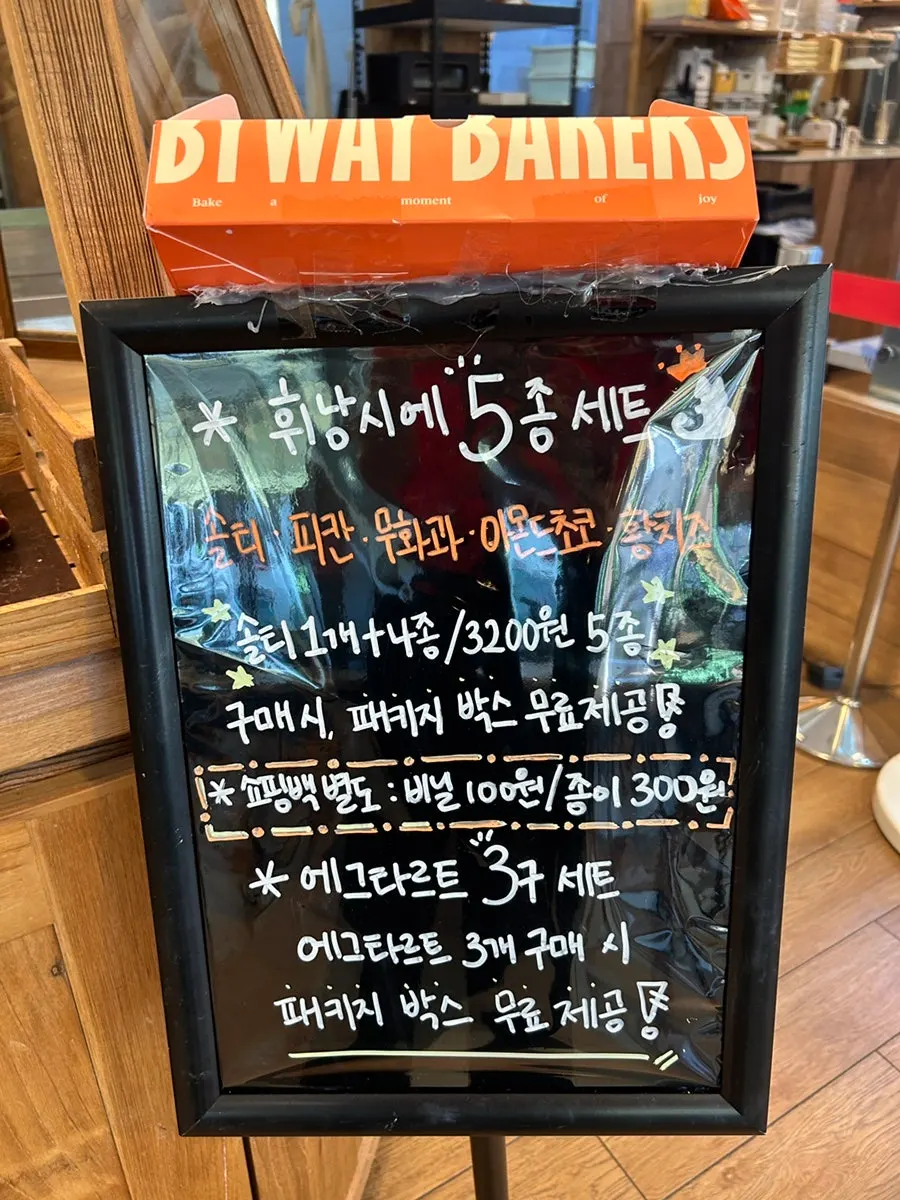 BYWAY BAKERS
Bake a moment of joy
* 휘낭시에 5종 세트
솔티·피칸·무화과·아몬드초코·황치즈
솔티 1개+4종/3200원 5종
구매 시, 패키지 박스 무료제공!
* 쇼핑백 별도 : 비닐 100원/종이 300원
* 에그타르트 3구 세트
에그타르트 3개 구매 시
패키지 박스 무료 제공!